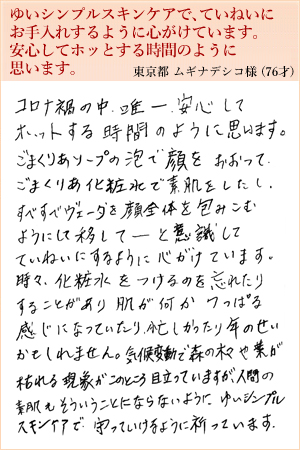 ゆいシンプルスキンケアで、ていねいに
お手入れするように心がけています。
安心してホッとする時間のように
思います。
東京都 ムギナデシコ様（76才）
コロナ禍の中、唯一、安心して
ホットする時間のように思います。
ごまくりあソープの泡で顔をおおって、
ごまくりあ化粧水で素肌をしたし、
すべすべヴェーダを顔全体を包みこむ
ようにして移して―と意識して
ていねいにするように心がけています。
時々、化粧水をつけるのを忘れたり
することがあり肌が何かつっぱる
感じになっていたり、忙しかったり年のせい
かもしれません。気候変動で森の木々や葉が
枯れる現象がこのところ目立っていますが、人間の
素肌もそういうことにならないように、ゆいシンプル
スキンケアで、守っていけるように祈っています。